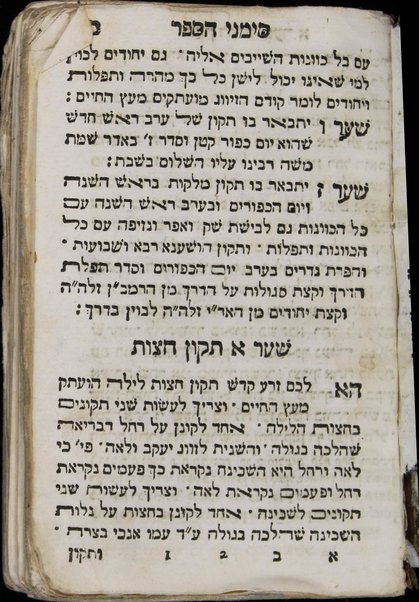 סימני הספר
עם כל כוונות השייכים אליה ֹ גם יחודים לכוין
למי שאינו יכול לישן כל כך מהרה ותפלות
ויחודים לומר קודם הזיווג מועתקים מעץ החיים :
שער ו יתבאר בו תקון של ערב ראש חדש
שהוא יום כפור קטן וסדר ז׳ באדר שמת
משה רבינו עליו השלום בשבת :
שער ז יתבאר בו תקון מלקות בראש השנה
ויום הכפורים ובערב ראש השנה עם
כל הכוונות גם לבישת שק ואפר ונזיפה עם כל
הכוונות ותפלות ֹ ותקון הושענא רבא ושבועות ֹ
והפרת נדרים בערב יום הכפורים וסדר תפלת
הדרך וקצת סגולות על הדרך מן הרמב״ן זלה״ה
וקצת יחודים מן האר״י זלה״ה לכוין בדרך :
שער א תקון חצות
הא לכם זרע קדש תקון חצות לילה הועתק
מעץ החיים ֹ וצריך לעשות שני תקונים
בחצות הלילה ֹ אחד לקונן על רחל דבריאה
שהלכה בגולה ֹ והשנית לזווג יעקב ולאה ֹ פי׳ כי
לאה ורחל היא השכינה נקראת כך פעמים נקראת
רחל ופעמים נקראת לאה ֹ וצריך לעשות שני
תקונים לשכינה ֹ אחד לקונן בחצות על גלות
השכינה שהלכה בגולה ע״ד עמו אנכי בצרה ֹ
א ב 2 1 ותקון